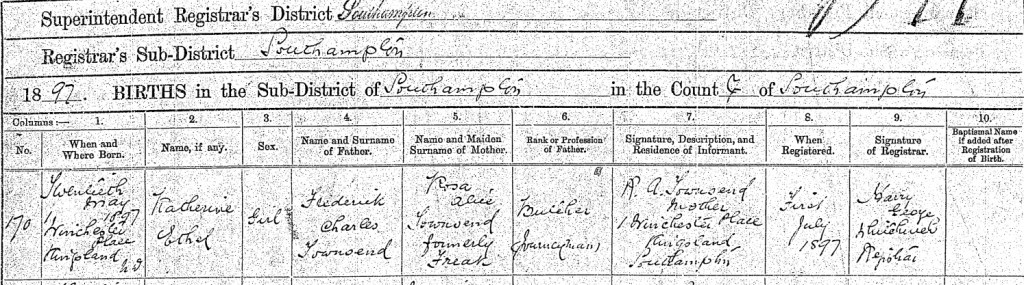 Superintendent Registrar's District Southampton
Registrar's Sub-District Southampton
1897. BIRTHS in the Sub-District of Southampton in the County of Southampton
Columns :— 1. 2. 3. 4. 5. 6. 7. 8. 9. 10.
No. When and Where Born. Name, if any. Sex. Name and Surname of Father. Name and Maiden Surname of Mother. Rank or Profession of Father. Signature, Description, and Residence of Informant. When Registered. Signature of Registrar. Baptismal Name if added after Registration of Birth.
170
Twentieth
May
1897
1 Winchester
Place
Kingsland
Katherine
Ethel
Girl
Frederick
Charles
Townsend
Rosa
Alice
Townsend
formerly
Freak
Butcher
(Journeyman)
R. A. Townsend
Mother
1 Winchester Place
Kingsland
Southampton
First
July
1897
Harry
George
Registrar